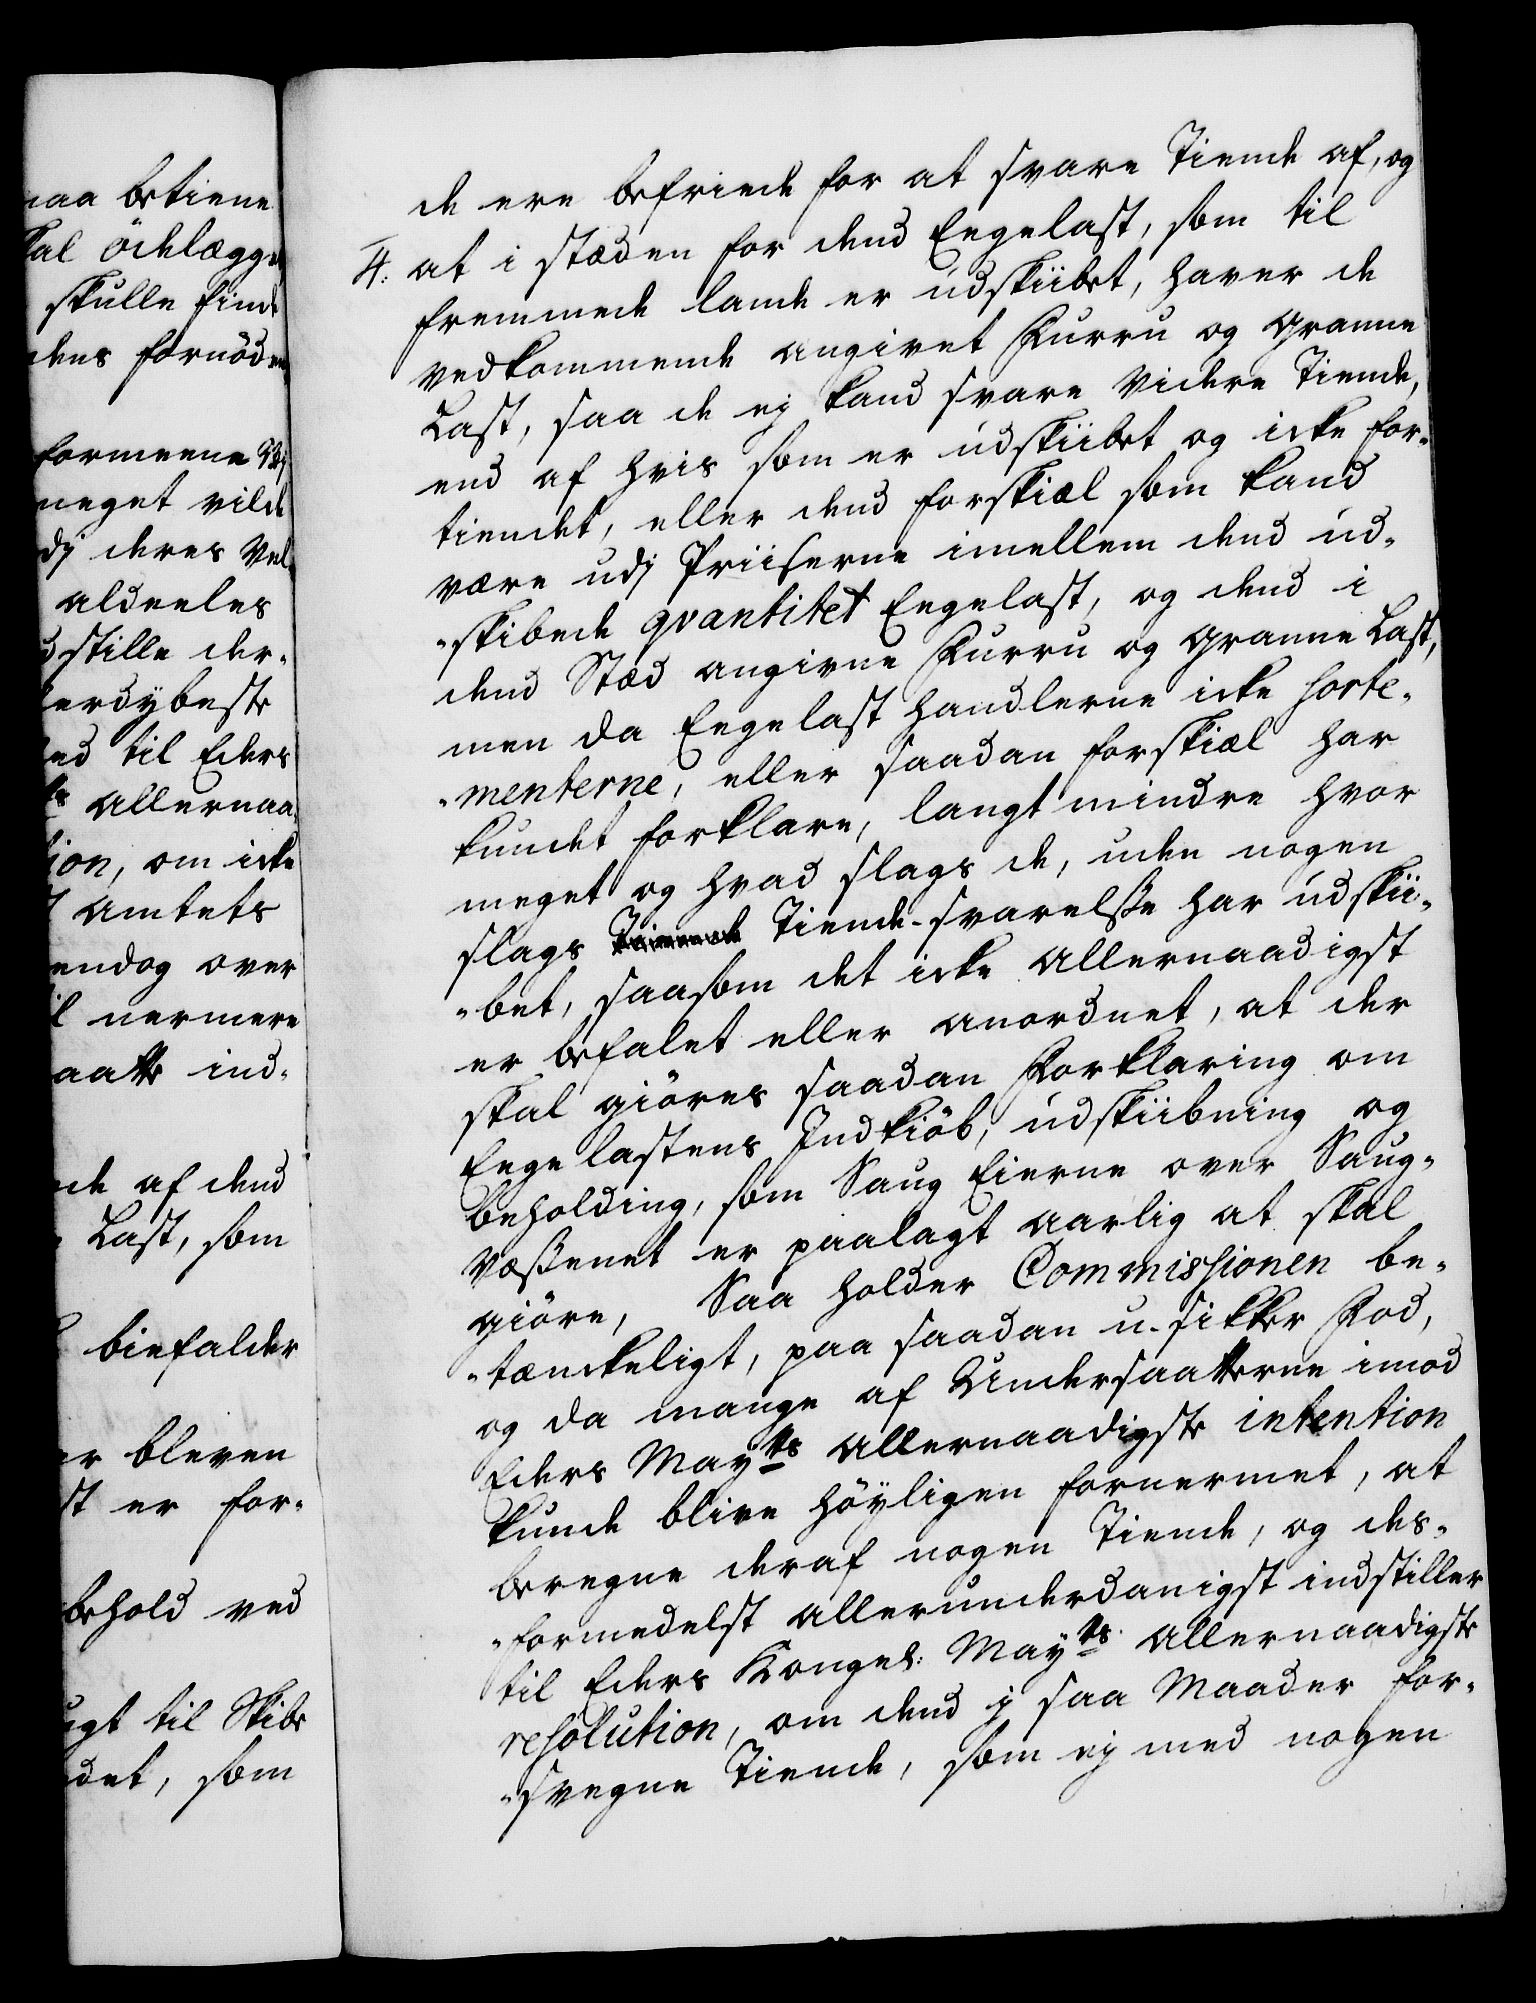 naa betiene
kal ödelægge
skulle finde
dens fornöden
formeene
meget vilde
dj deres Vel
aldeeles
stille der-
erdÿbeste
ed til Eders
ts allernaa
ion, om icke
amtets
endog over
l nermere
aatte ind-
de af dend
Last, som
biefalder
er bleven
st er for-
behold ved
ugt til Skibe
det, som
de ere befriede for at svare Tiende af, og
4: at i stæden for dend Eegelast, som til
fremmede lande er udskiibet, haver de
vedkommende angivet Furru og Granne
Last, saa de ej kand svare videre Tiende,
end af hvis som er udskiibet og icke for-
tiendet, eller dend forskiæl som kand
være udj Priiserne imellem dend ud-
-skibede qvantitet Eegelast, og dend i
dend Stæd angivne Furru og Granne Last,
men da Eegelast handlerne icke sorte-
-menterne, eller saadan forskiæl har
kundet forklare, langt mindre hvor
meget og hvad slags de, uden nogen
slags Tiende-svarelsse har udskii-
-bet, saasom det icke allernaadigst
er befalet eller anordnet, at der
skal giöres saadan Forklaring om
Eegelastens Indkiöb, udskiibning og
beholding, som Saug Eierne over Saug-
væssenet er paalagt aarlig at skal
giöre, Saa holder Commissionen be-
-tænckeligt, paa saadan u-sikker Fod,
og da mange af Undersaatterne imod
Eders Mayts allernaadigste intention
kunde blive höÿligen fornermet, at
beregne deraf nogen Tiende, og des-
-formedelst allerunderdanigst indstiller
til Eders Kongel: Mayts allernaadigste
resolution, om dend j saa Maader for-
-svegne Tiende, som ej med nogen